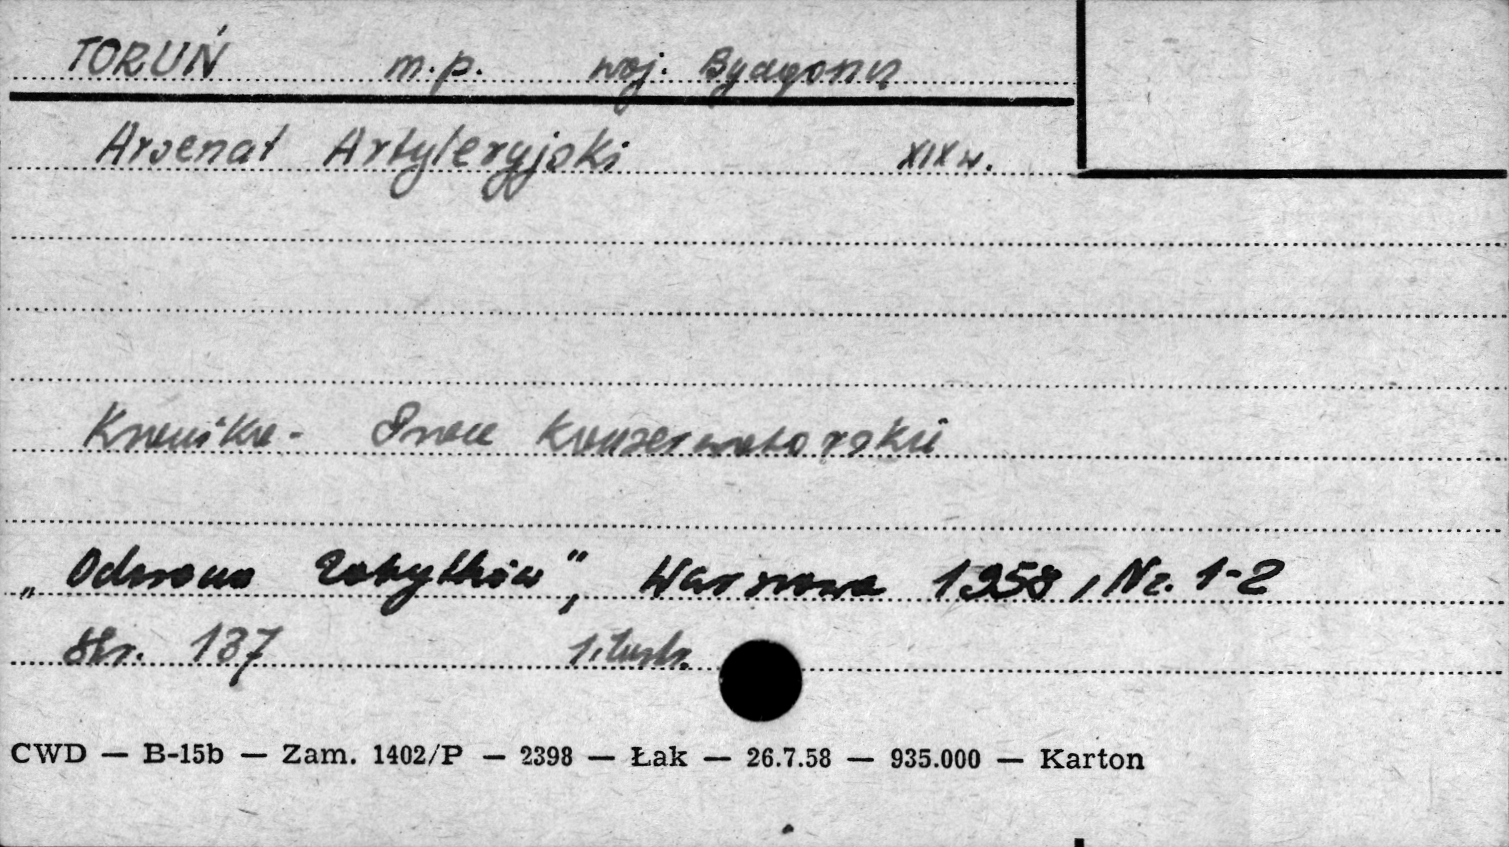 TORUŃ m.p. woj. Bydgoszcz
Arsenał Artyleryjski XIX w.
Kronika - Prace konserwatorskie
„Ochrona Zabytków”, Warszawa 1958, Nr. 1-2
str. 137 1 ilustr.
CWD — B-15b — Zam. 1402/P — 2398 — Łak — 26.7.58 — 935.000 — Karton